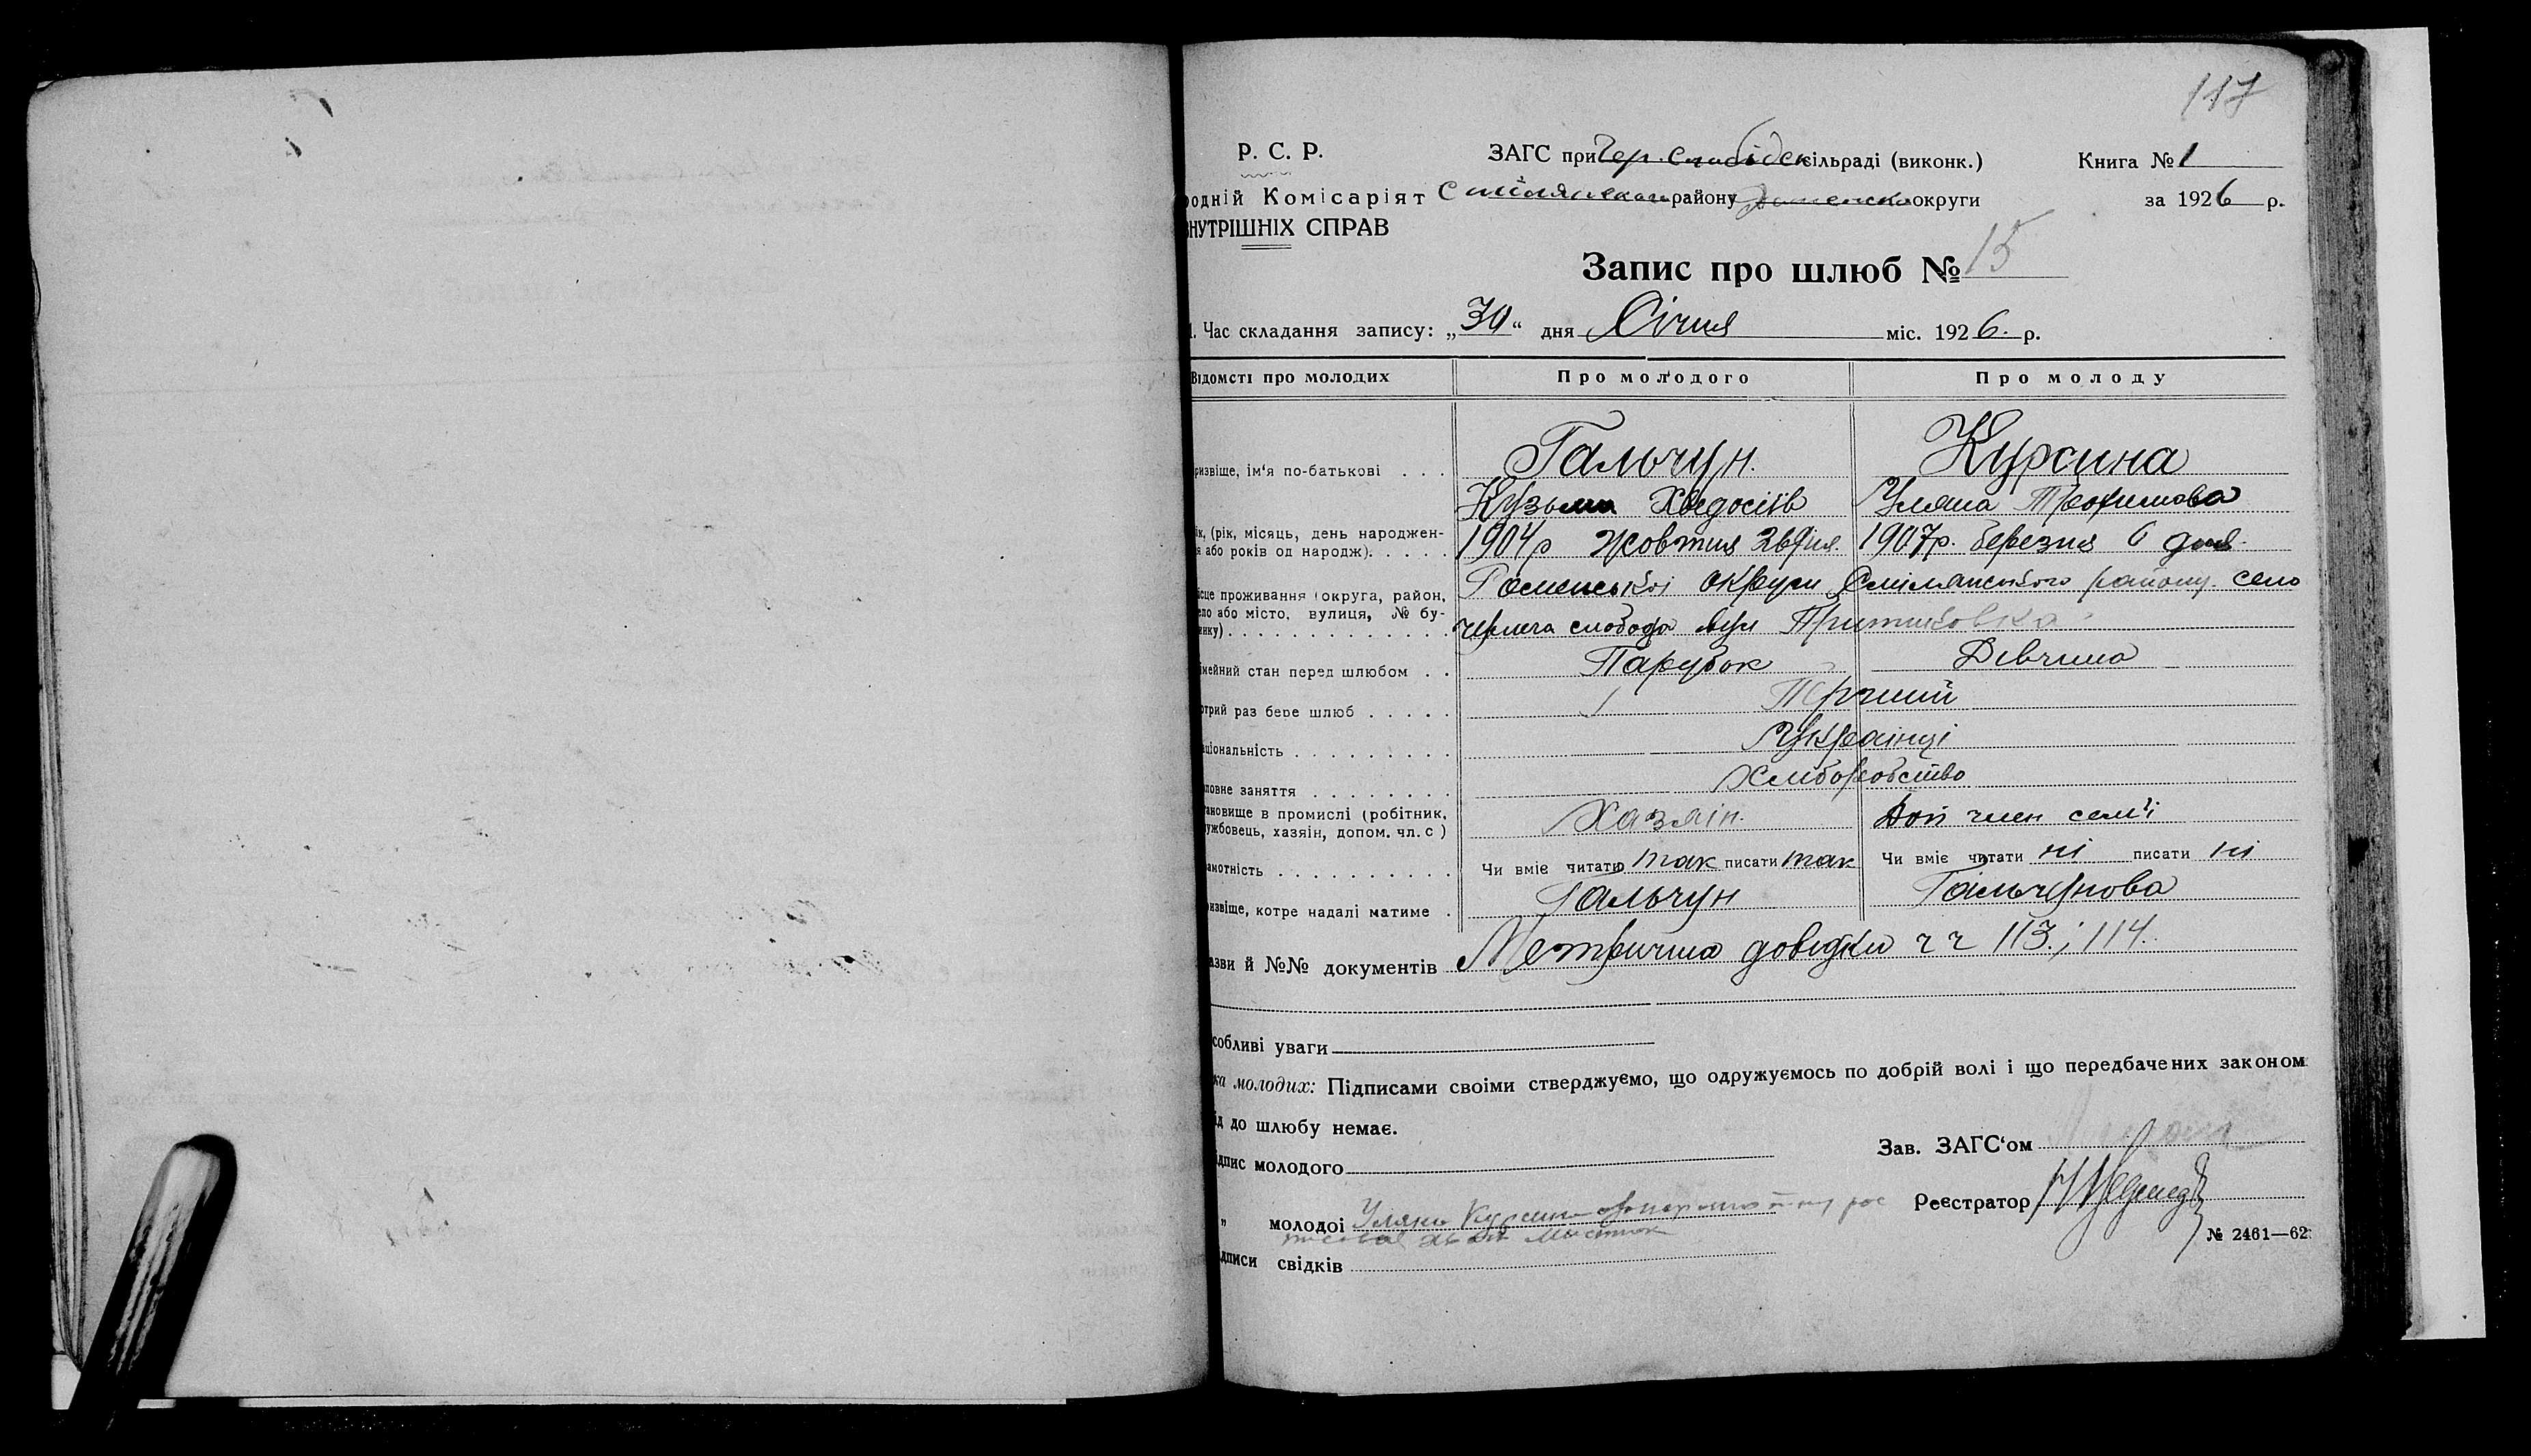 117
Р. С. Р.
ЗАГС при Чер. Слобідск сільраді (виконк.)
Книга № 1
родній Комісаріят
Смілянського району Роменсько округи
за 1926 р.
ВНУТРІШНІХ СПРАВ
Запис про шлюб № 15
1. Час складання запису: „30“ дня Січня міс. 1926. р.
Відомсті про молодих
Про молодого
Про молоду
різвіще, ім'я по-батькові . . .
Гальчун.
Курсина
Кузьма Хведосіїв
Уляна Трохимова
ік, (рік, місяць, день народжен-
я або років од народж). . . . .
1904р Жовтня 26 дня.
1907р. березня 6 дня
ісце проживання (округа, район,
ело або місто, вулиця, № бу-
инку) . . . . . . . . . . . . .
Роменської округи Смілянського району. село
черлена слобода вул
імейний стан перед шлюбом . .
Парубок
Дівчина
отрий раз бере шлюб . . . . .
Перший
аціональність . . . . . . . . .
Українці
ловне заняття . . . . . . . .
Хліборобство
тановище в промислі (робітник,
лужбовець, хазяїн, допом. чл. с )
Хазяїн.
Доп член сем'ї
амотність . . . . . . . . . .
Чи вміє читати так писати так
Чи вміє читати ні писати ні
різвіще, котре надалі матиме .
Гальчун
Гальчунова
азви й №№ документів Метрична довідки ч ч 113. і 114.
собливі уваги
ка молодих: Підписами своїми стверджуємо, що одружуємось по добрій волі і що передбачених законом
ід до шлюбу немає.
Зав. ЗАГС'ом
ідпис молодого
„ молодої Уляни Курсин
Реєстратор
ідписи свідків
№ 2461—62